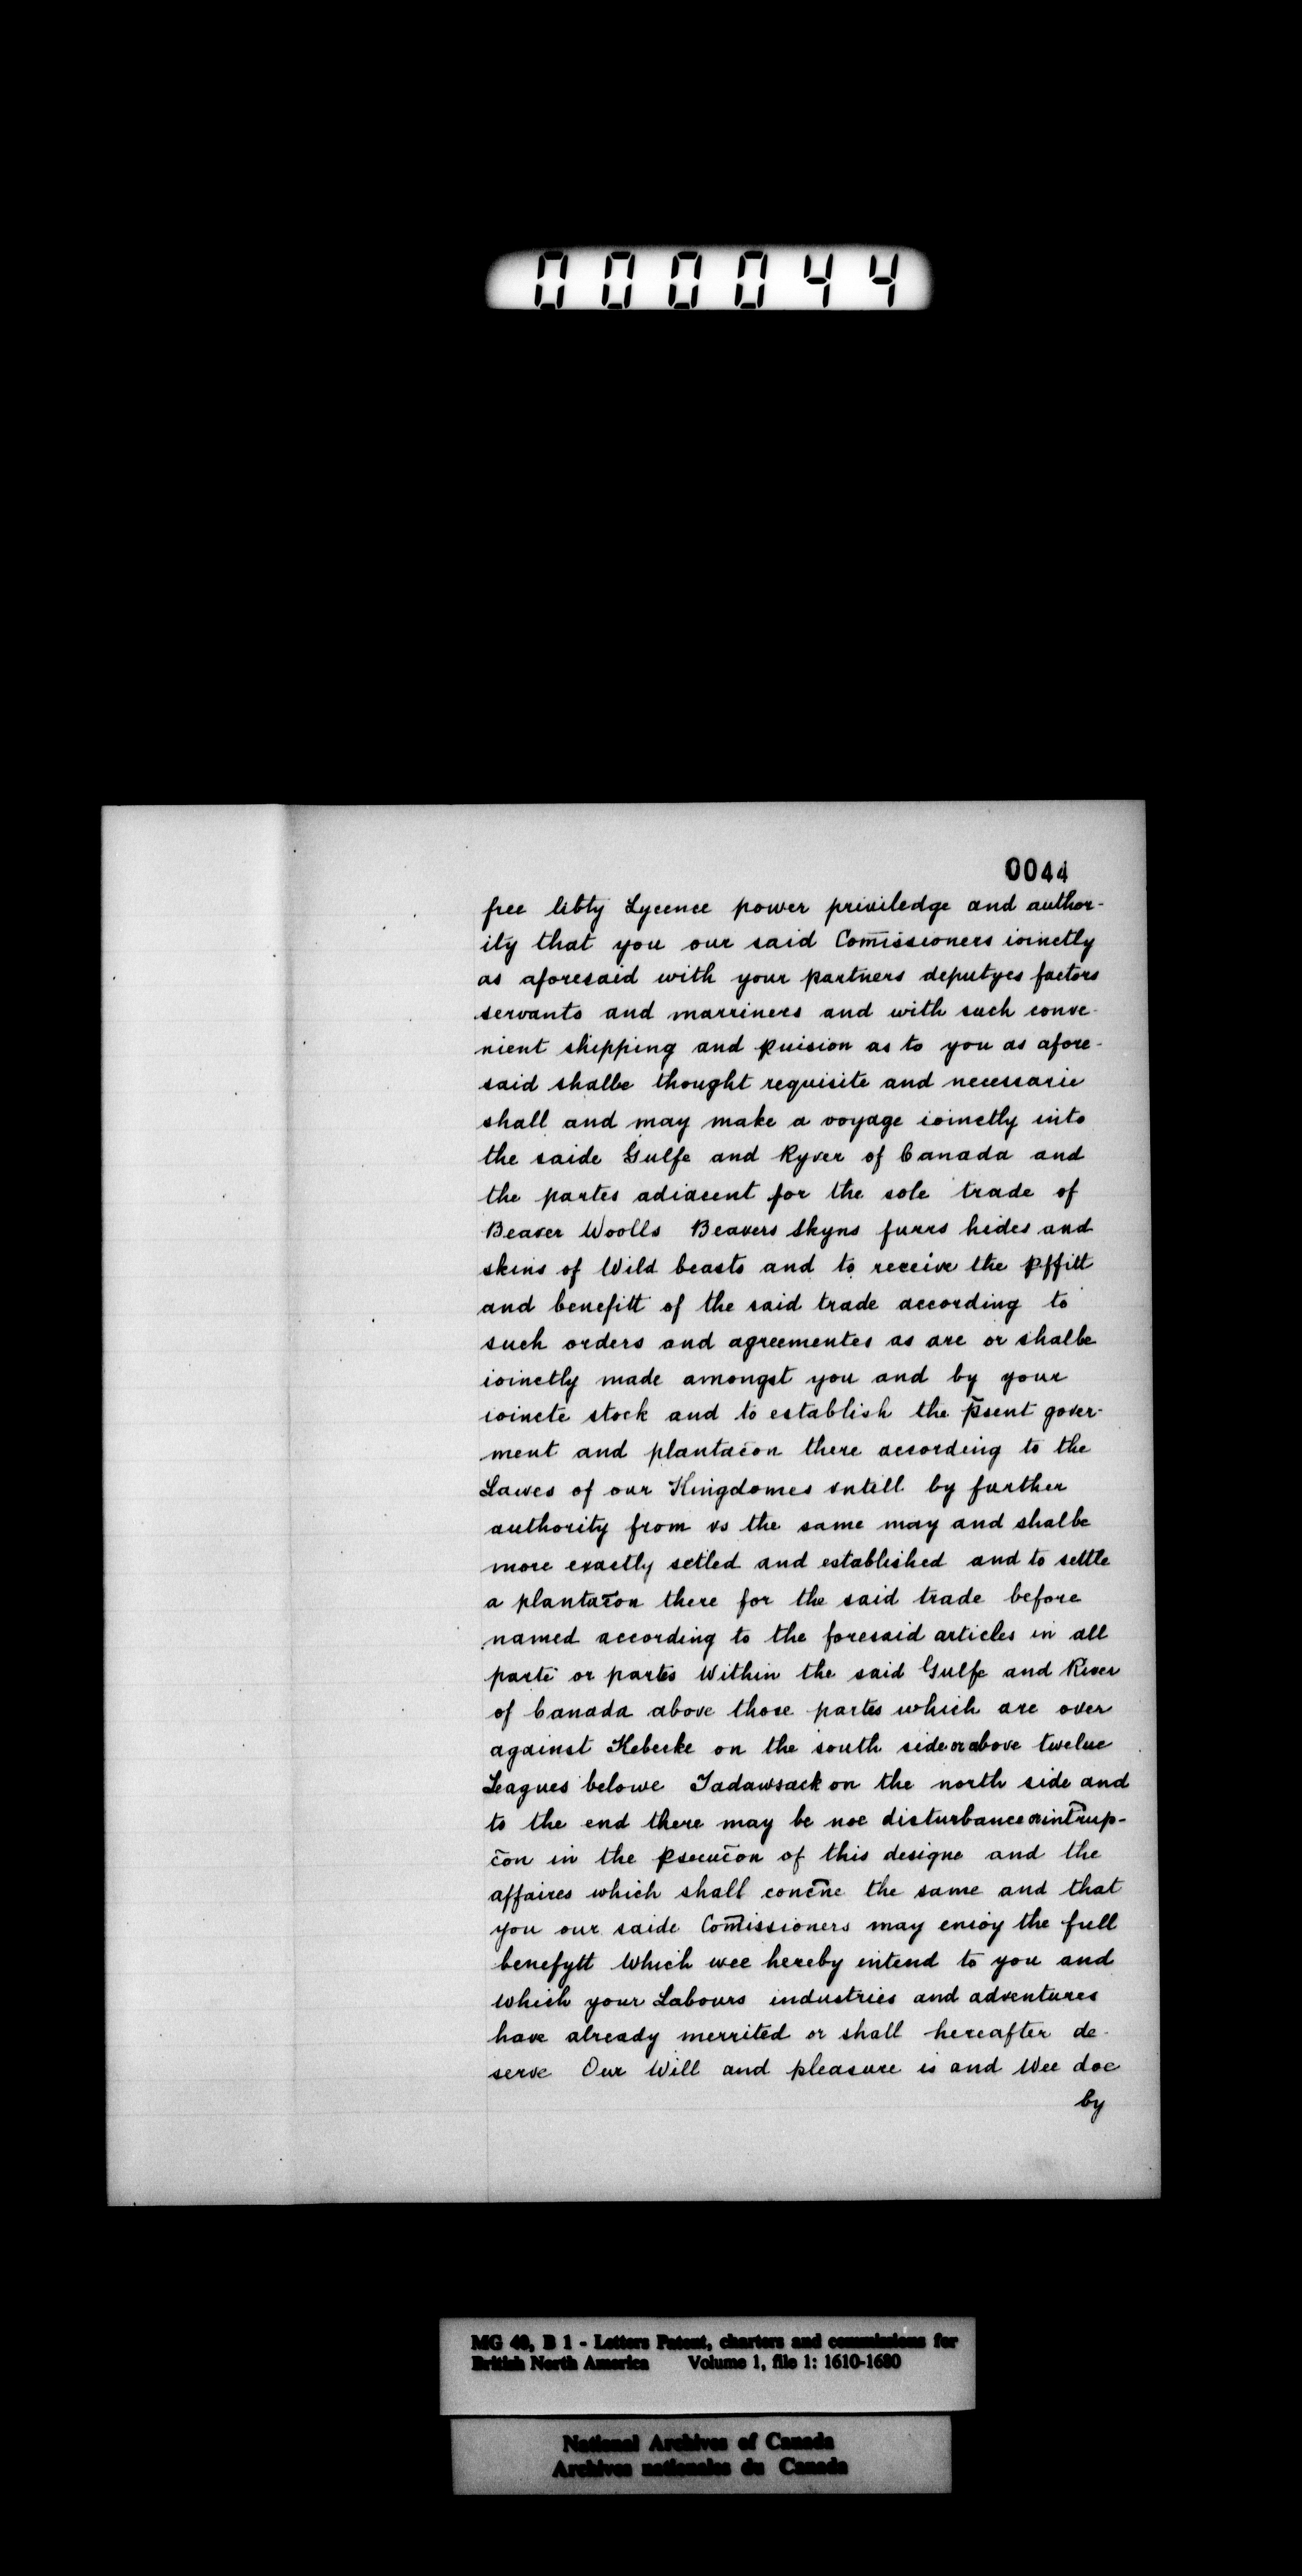 000044
0044
free libty Lycence power priviledge and author-
ity that you our said Com̄issioners ioinctly
as aforesaid with your partners deputyes factors
servants and marriners and with such conve-
nient shipping and ꝓuision as to you as afore-
said shalbe thought requisite and necessarie
shall and may make a voyage ioinctly into
the saide Gulfe and Ryver of Canada and
the partes adiacent for the sole trade of
Beaver Woolls Beavers Skyns furrs hides and
skins of Wild beasts and to receive the ꝓffitt
and benefitt of the said trade according to
such orders and agreementes as are or shalbe
ioinctly made amongst you and by your
ioincte stock and to establish the p̄sent gover-
ment and plantac̄on there according to the
Lawes of our Kingdomes vntill by further
authority from vs the same may and shalbe
more exactly setled and established and to settle
a plantac̄on there for the said trade before
named according to the foresaid articles in all
parte or partes Within the said Gulfe and River
of Canada above those partes which are over
against Kebecke on the south side or above twelue
Leagues belowe Tadawsack on the north side and
to the end there may be noe disturbance or int̄rup-
c̄on in the ꝓsecuc̄on of this designe and the
affaires which shall conc̄ne the same and that
you our saide Com̄issioners may enioy the full
benefytt Which wee hereby intend to you and
Which your Labours industries and adventures
have already merrited or shall hereafter de-
serve Our Will and pleasure is and Wee doe
by
MG 40, B 1 - Letters Patent, charters and commissions for
British North America Volume 1, file 1: 1610-1680
National Archives of Canada
Archives nationales du Canada